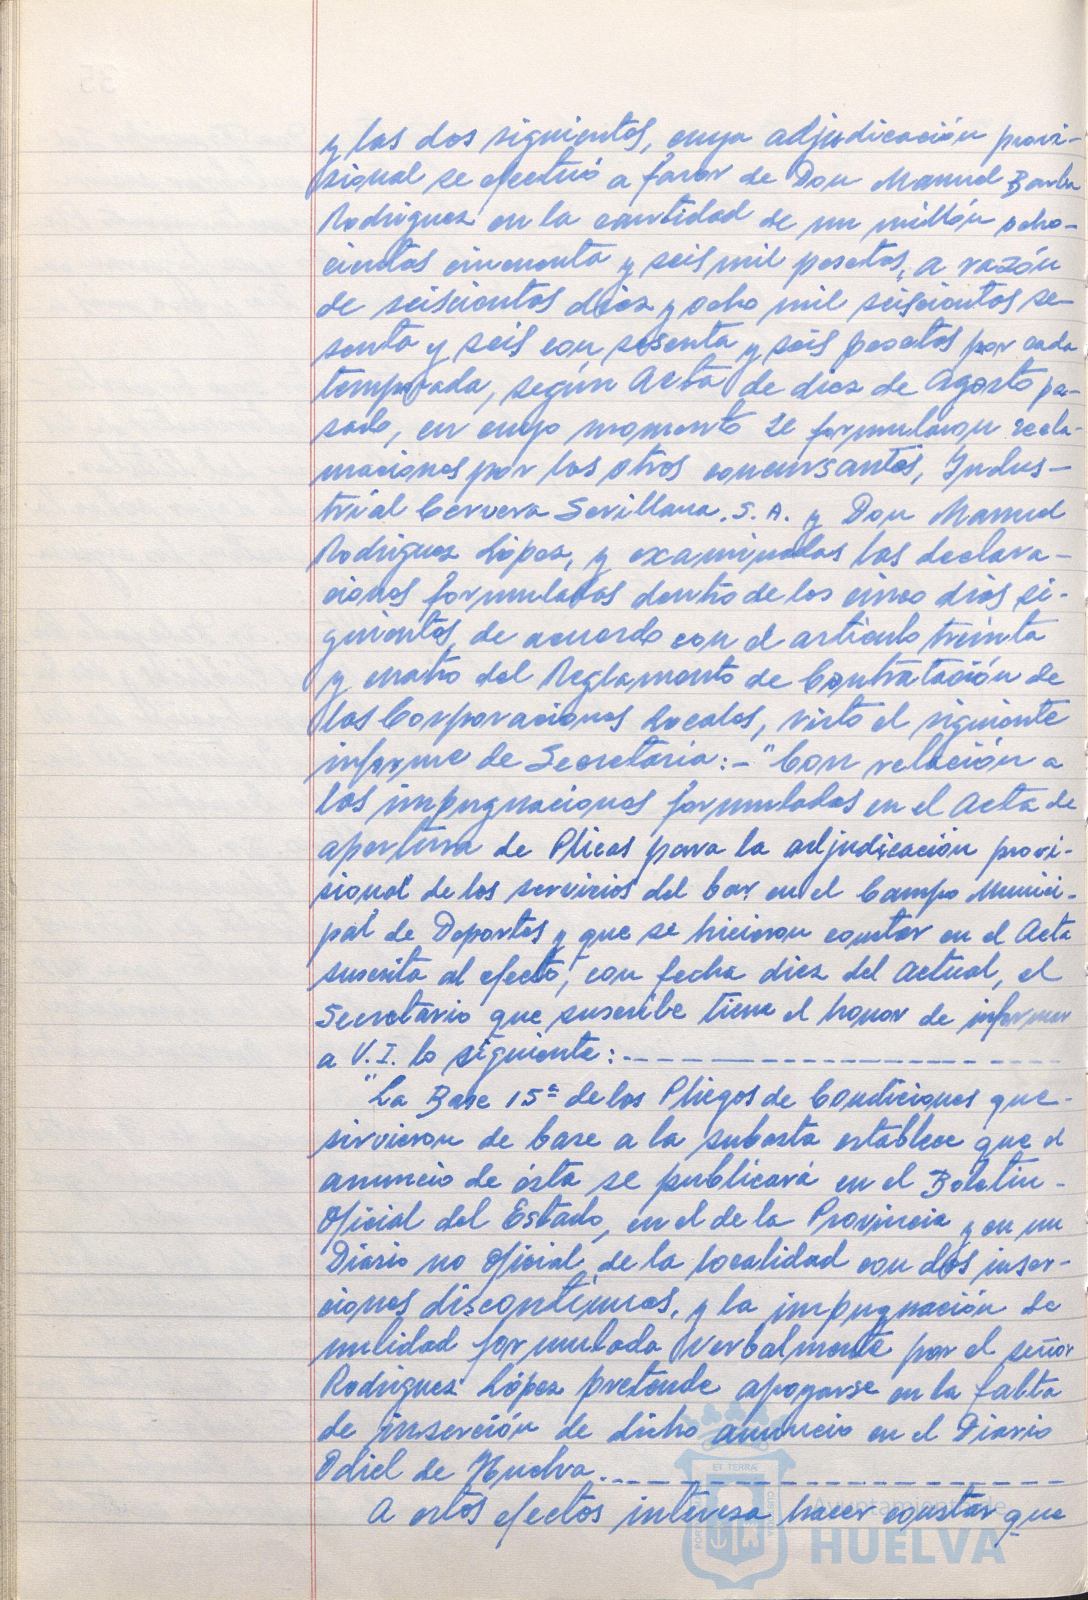 y las dos siguientes, cuya adjudicación provi-
sional se efectuó a favor de Don Manuel Barba
Rodriguez en la cantidad de un millón ocho-
cientas cincuenta y seis mil pesetas, a razón
de seiscientas diez y ocho mil seiscientas se-
senta y seis con sesenta y seis pesetas por cada
temporada, según Acta de diez de Agosto pa-
sado, en cuyo momento se formularon recla-
maciones por los otros concursantes, Indus-
trial Cervera Sevillana, S.A. y Don Manuel
Rodriguez López, y examinadas las declara-
ciones formuladas dentro de los cinco dias si-
guientes, de acuerdo con el articulo treinta
y cuatro del Reglamento de Contratación de
las Corporaciones Locales, visto el siguiente
informe de Secretaria:- "Con relación a
las impugnaciones formuladas en el Acta de
apertura de Plicas para la adjudicación provi-
sional de los servicios del bar en el Campo Munici-
pal de Deportes y que se hicieron constar en el Acta
suscrita al efecto, con fecha diez del actual, el
Secretario que suscribe tiene el honor de informar
a V.I. lo siguiente:
"La Base 15ª de los Pliegos de Condiciones que-
sirvieron de base a la subasta establece que el
anuncio de ésta se publicará en el Boletin-
Oficial del Estado, en el de la Provincia y en un
Diario no Oficial de la localidad con dos inser-
ciones discontinuas, y la impugnación de
nulidad formulada verbalmente por el señor
Rodriguez López pretende apoyarse en la falta
de inserción de dicho anuncio en el Diario
Odiel de Huelva.
A estos efectos interesa hacer constar que
Ayuntamiento de
HUELVA